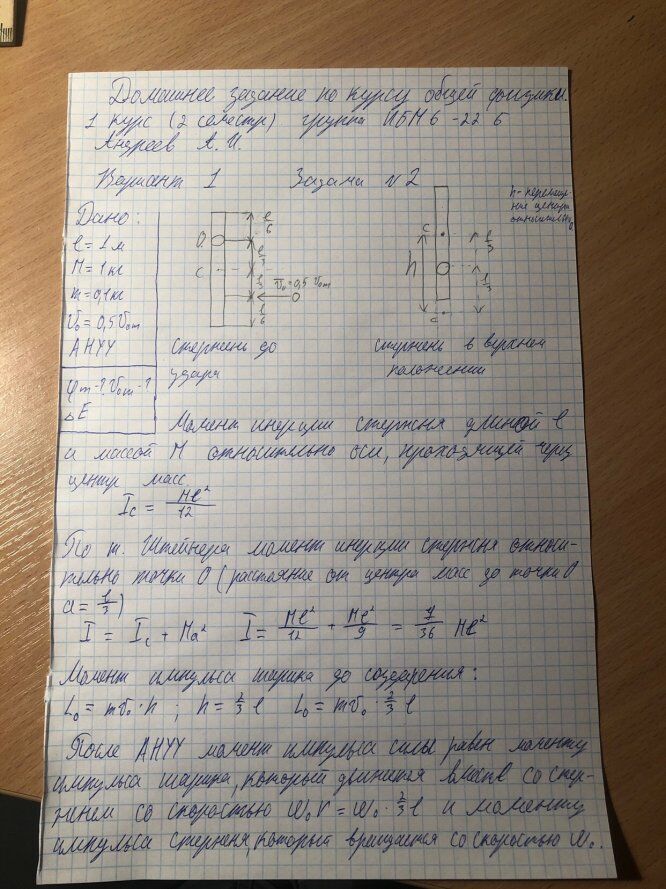 Домашнее задание по курсу общей физики.
1 курс (2 семестр) группа ИБМ6-22Б
Андреев А. И.
Вариант 1 Задача №2
Дано:
l = 1 м
M = 1 кг
m = 0,1 кг
V₀ = 0,5 V₀m
АНУУ
φm-? V₀m-?
ΔE
O
C
l/6
l/3
l/3
l/6
V̅₀ = 0,5 V₀m
Стержень до
удара
h - перемеще-
ние центра
относительно
C
h
l/3
l/3
стержень в верхнем
положении
Момент инерции стержня длиной l
и массой M относительно оси, проходящей через
центр масс
Ic = Ml²/12
По т. Штейнера момент инерции стержня относи-
тельно точки O (расстояние от центра масс до точки O
a = l/3)
I = Ic + Ma² I = Ml²/12 + Ml²/9 = 7/36 Ml²
Момент импульса шарика до соударения:
L₀ = mV₀·h ; h = 2/3 l L₀ = mV₀·2/3 l
После АНУУ момент импульса силы равен моменту
импульса шарика, который движется вместе со стер-
жнем со скоростью ω₀r = ω₀·2/3 l и моменту
импульса стержня, который вращается со скоростью ω₀.